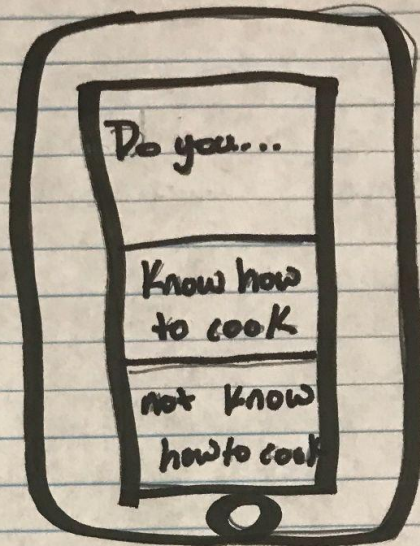 Do you...
Know how
to cook
not know
how to cook